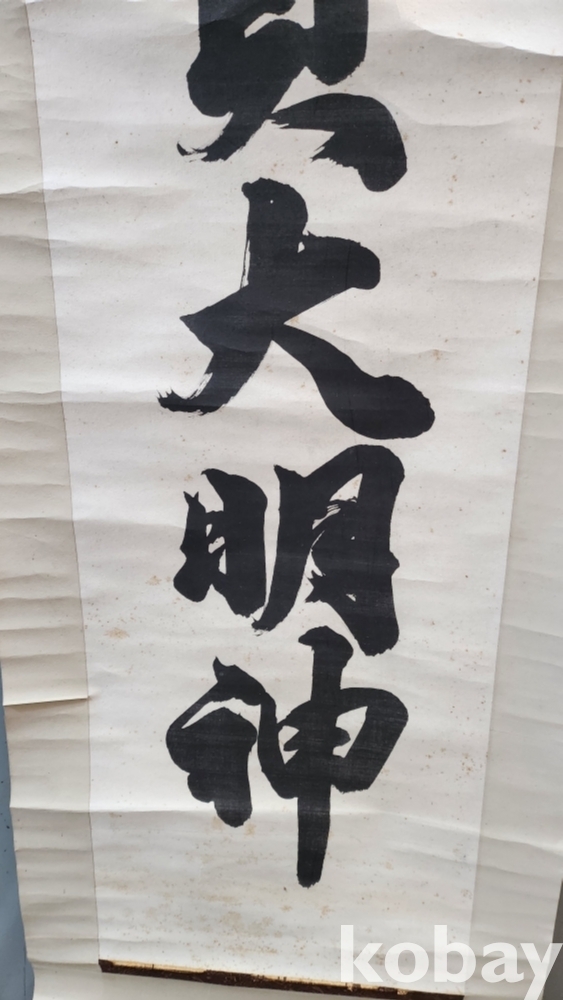 大
明
神
kobay